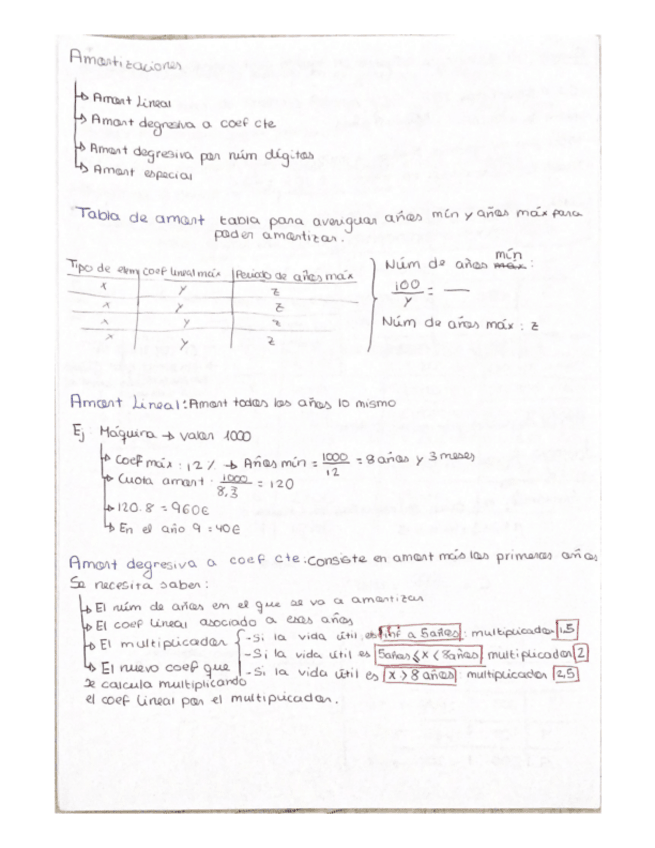 Amortizaciones
Amort Lineal
Amort degresiva a coef cte
Amort degresiva por núm dígitos
Amort especial
Tabla de amort tabla para averiguar años mín y años máx para
poder amortizar.
Tipo de elem coef lineal máx Periodo de años máx
x y z
x y z
x y z
x y z
Núm de años mín máx :
100
y
= —
Núm de años máx : z
Amort Lineal: Amort todos los años lo mismo
Ej: Máquina → valor 1000
Coef máx : 12% → Años mín = 1000/12 = 8 años y 3 meses
Cuota amort : 1000/8,3 = 120
120.8 = 960€
En el año 9 = 40€
Amort degresiva a coef cte: Consiste en amort más los primeros años
Se necesita saber:
El núm de años en el que se va a amortizar
El coef lineal asociado a esos años
El multiplicador
- Si la vida útil es inf a 5años : multiplicador 1,5
- Si la vida útil es 5años ≤ x < 8años multiplicador 2
- Si la vida útil es x > 8 años multiplicador 2,5
El nuevo coef que
se calcula multiplicando
el coef lineal por el multiplicador.